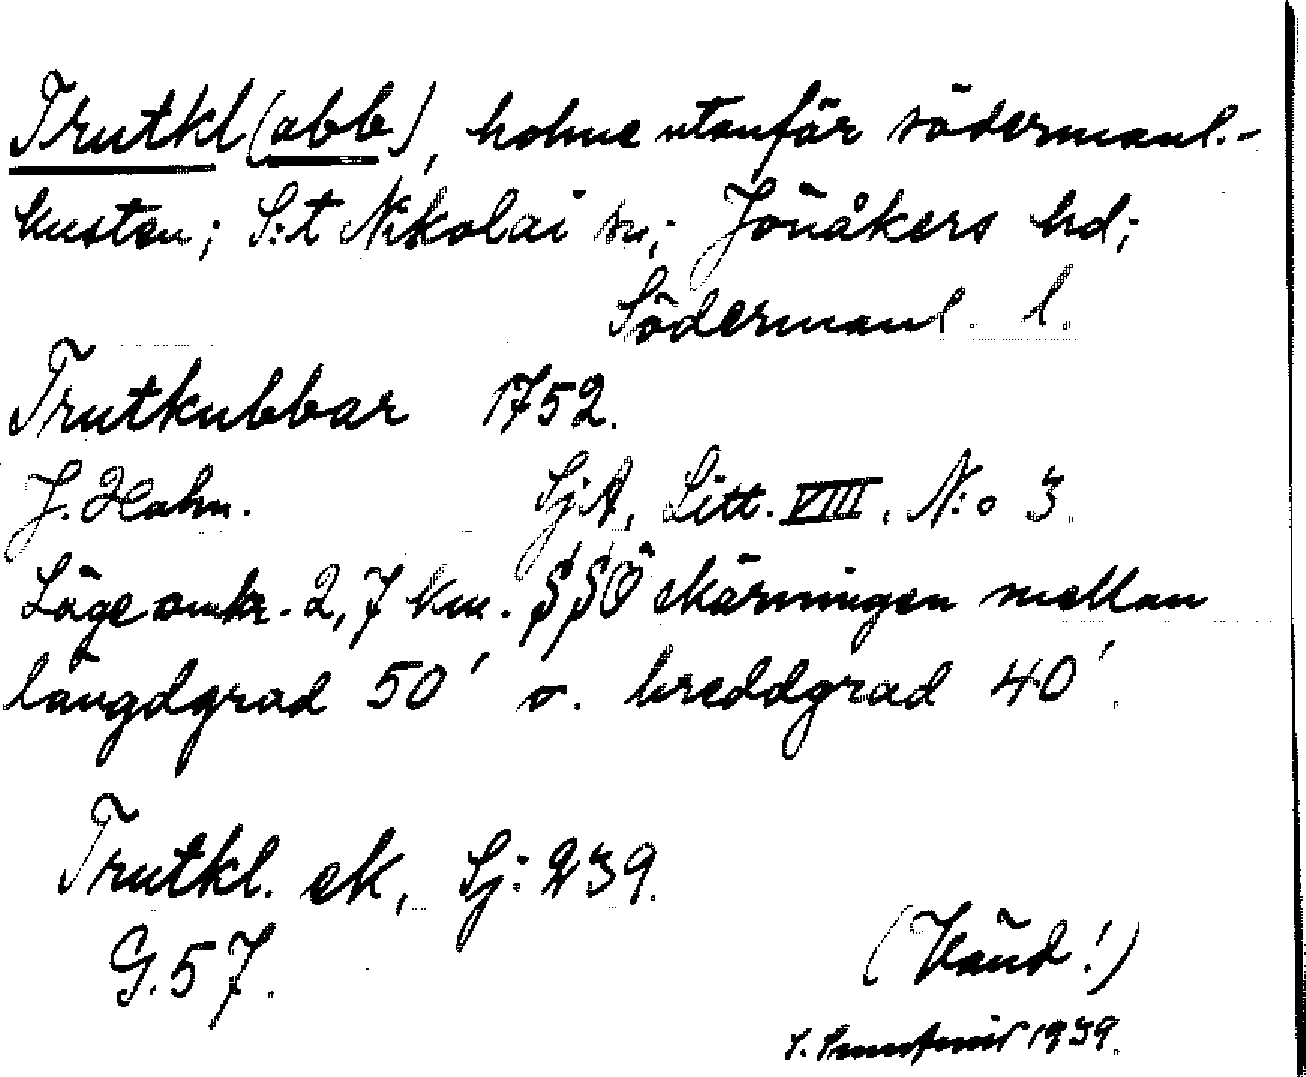 Trutkl(abb), holme utanför södermanl.-
kusten; S:t Nikolai sn; Jönåkers hd;
Södermanl. l.
Trutkubbar 1752.
J. Hahn. SjA, Litt. VIII. N:o 3.
Läge omkr. 2,7 km. SSÖ skärningen mellan
längdgrad 50′ o. breddgrad 40′.
Trutkl. ek, Sj: 239.
G. 57.
(Vänd!)
1939.